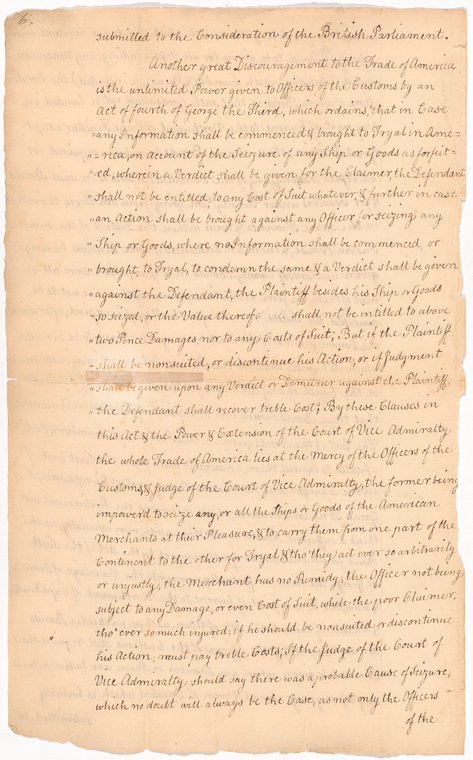 6.
submitted to the Consideration of the British Parliament.
Another great Discouragement to the Trade of America
is the unlimited Power given to Officers of the Customs by an
Act of fourth of George the Third, which ordains, "that in Case
"any Information shall be commenced & brought to Tryal in Ame=
"=rica, on Account of the Seizure of any Ship or Goods as forfeit=
"ed, wherein a Verdict shall be given for the Claimer, the Defendant
"shall not be entitled to any Cost of Suit whatever; & further in case
"an Action shall be brought against any Officer for seizing any
"Ship or Goods, where no Information shall be commenced, or
"brought, to Tryal, to condemn the same & a Verdict shall be given
"against the Defendant, the Plaintiff besides his Ship or Goods
"so seized, or the Value thereof, shall not be intitled to above
"two Pence Damages, nor to any Costs of Suit; But if the Plaintiff
"shall be nonsuited, or discontinue his Action, or if Judgment
"shall be given upon any Verdict or Demurrer against the Plaintiff,
"the Defendant shall recover treble Cost; By these Clauses in
this Act & the Power & Extension of the Court of Vice Admiralty
the whole Trade of America lies at the Mercy of the Officers of the
Customs, & Judge of the Court of Vice Admiralty, the former being
impower'd to seize any, or all the Ships or Goods of the American
Merchants at their Pleasure, & to carry them from one part of the
Continent to the other for Tryal, & tho' they act ever so arbitrarily
or unjustly, the Merchant has no Remidy, the Officer not being
subject to any Damage, or even Cost of Suit, while the poor Claimer,
tho' ever so much injured, if he should be nonsuited or discontinue
his Action, must pay treble Costs; If the Judge of the Court of
Vice Admiralty should say there was a probable Cause of Seizure,
which no doubt will always be the Case, as not only the Officers
of the